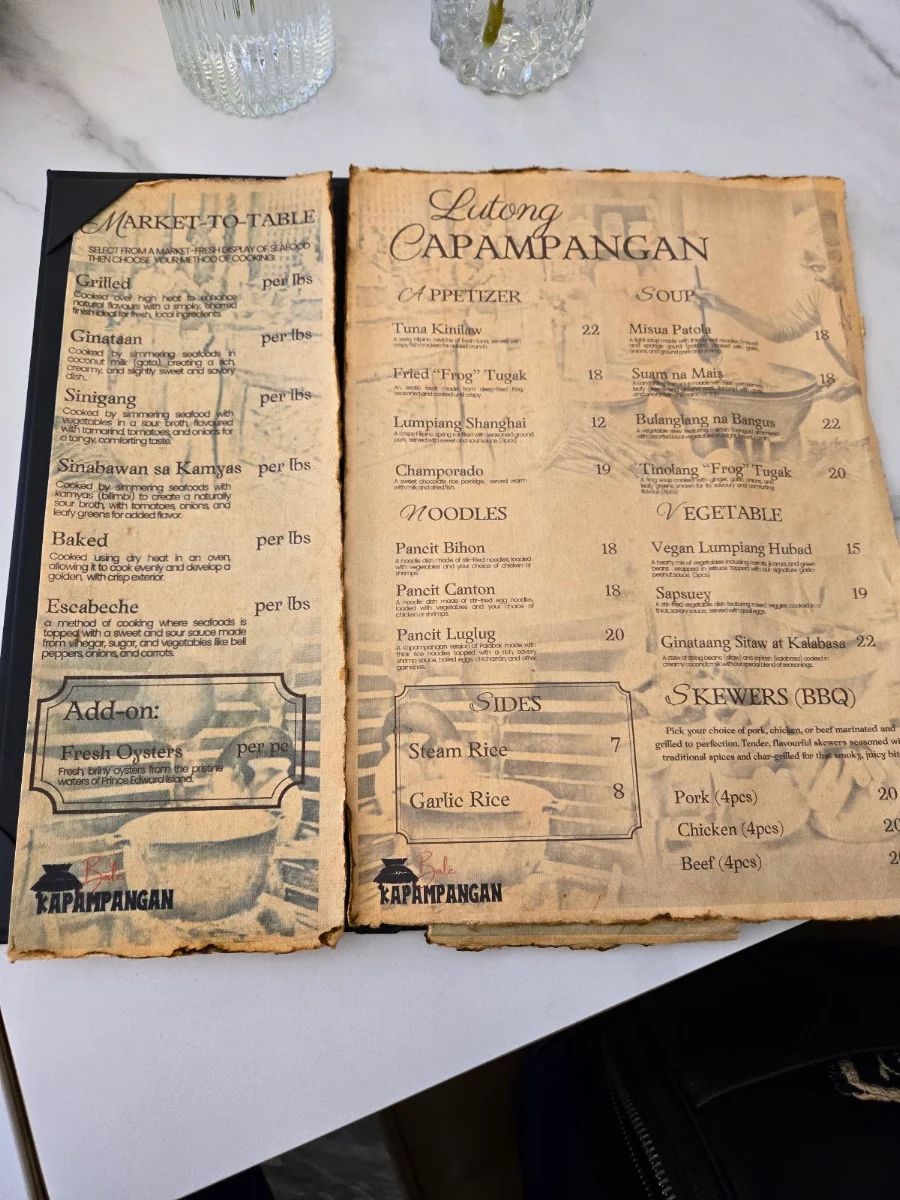 MARKET-TO-TABLE
SELECT FROM A MARKET-FRESH DISPLAY OF SEAFOOD
THEN CHOOSE YOUR METHOD OF COOKING!
Grilled per lbs
Cooked over high heat to enhance
natural flavours with a smoky, charred
finish ideal for fresh, local ingredients.
Ginataan per lbs
Cooked by simmering seafoods in
coconut milk (gata), creating a rich,
creamy, and slightly sweet and savory
dish.
Sinigang per lbs
Cooked by simmering seafood with
vegetables in a sour broth, flavoured
with tamarind, tomatoes, and onions for
a tangy, comforting taste.
Sinabawan sa Kamyas per lbs
Cooked by simmering seafoods with
kamyas (bilimbi) to create a naturally
sour broth, with tomatoes, onions, and
leafy greens for added flavor.
Baked per lbs
Cooked using dry heat in an oven,
allowing it to cook evenly and develop a
golden, with crisp exterior.
Escabeche per lbs
a method of cooking where seafoods is
topped with a sweet and sour sauce made
from vinegar, sugar, and vegetables like bell
peppers, onions, and carrots.
Add-on:
Fresh Oysters per pc
Fresh, briny oysters from the pristine
waters of Prince Edward Island.
Bale
KAPAMPANGAN
Lutong
CAPAMPANGAN
APPETIZER
Tuna Kinilaw 22
A zesty Filipino ceviche of fresh tuna, served with
crispy fish crackers for added crunch.
Fried “Frog” Tugak 18
An exotic treat made from deep-fried frog,
seasoned and cooked until crispy
Lumpiang Shanghai 12
A crispy Filipino spring roll filled with seasoned ground
pork, served with sweet and sour sauce (5pcs)
Champorado 19
A sweet chocolate rice porridge, served warm
with milk and dried fish.
NOODLES
Pancit Bihon 18
A noodle dish made of stir-fried noodles, loaded
with vegetables and your choice of chicken or
shrimps.
Pancit Canton 18
A noodle dish made of stir-fried egg noodles,
loaded with vegetables and your choice of
chicken or shrimps.
Pancit Luglug 20
A Kapampangan version of Palabok made with
thick rice noodles topped with a rich, savory
shrimp sauce, boiled eggs, chicharron, and other
garnishes.
SIDES
Steam Rice 7
Garlic Rice 8
Bale
KAPAMPANGAN
SOUP
Misua Patola 18
A light soup made with thin wheat noodles (misua)
and sponge gourd (patola), cooked with garlic,
onions, and ground pork and shrimp.
Suam na Mais 18
Bulanglang na Bangus 22
Tinolang “Frog” Tugak 20
A frog soup cooked with ginger, garlic, onions, and
leafy greens, known for its savoury and comforting
flavour. (5pcs)
VEGETABLE
Vegan Lumpiang Hubad 15
A hearty mix of vegetables including carrots, jicama, and green
beans wrapped in lettuce topped with our signature garlic-
peanut sauce. (3pcs)
Sapsuey 19
A stir-fried vegetable dish featuring mixed veggies cooked in a
thick, savory sauce, served with quail eggs.
Ginataang Sitaw at Kalabasa 22
A stew of string beans (sitaw) and squash (kalabasa) cooked in
creamy coconut milk with our special blend of seasonings.
SKEWERS (BBQ)
Pick your choice of pork, chicken, or beef marinated and
grilled to perfection. Tender, flavourful skewers seasoned wi
traditional spices and char-grilled for that smoky, juicy bit
Pork (4pcs) 20
Chicken (4pcs) 20
Beef (4pcs)